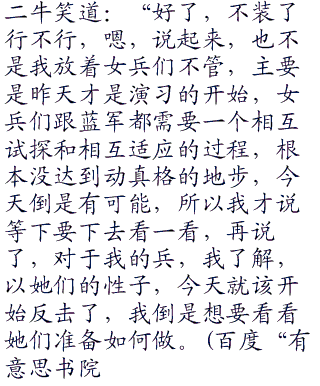 二牛笑道：“好了，不装了
行不行，嗯，说起来，也不
是我放着女兵们不管，主要
是昨天才是演习的开始，女
兵们跟蓝军都需要一个相互
试探和相互适应的过程，根
本没达到动真格的地步，今
天倒是有可能，所以我才说
等下要下去看一看，再说
了，对于我的兵，我了解，
以她们的性子，今天就该开
始反击了，我倒是想要看看
她们准备如何做。(百度“有
意思书院